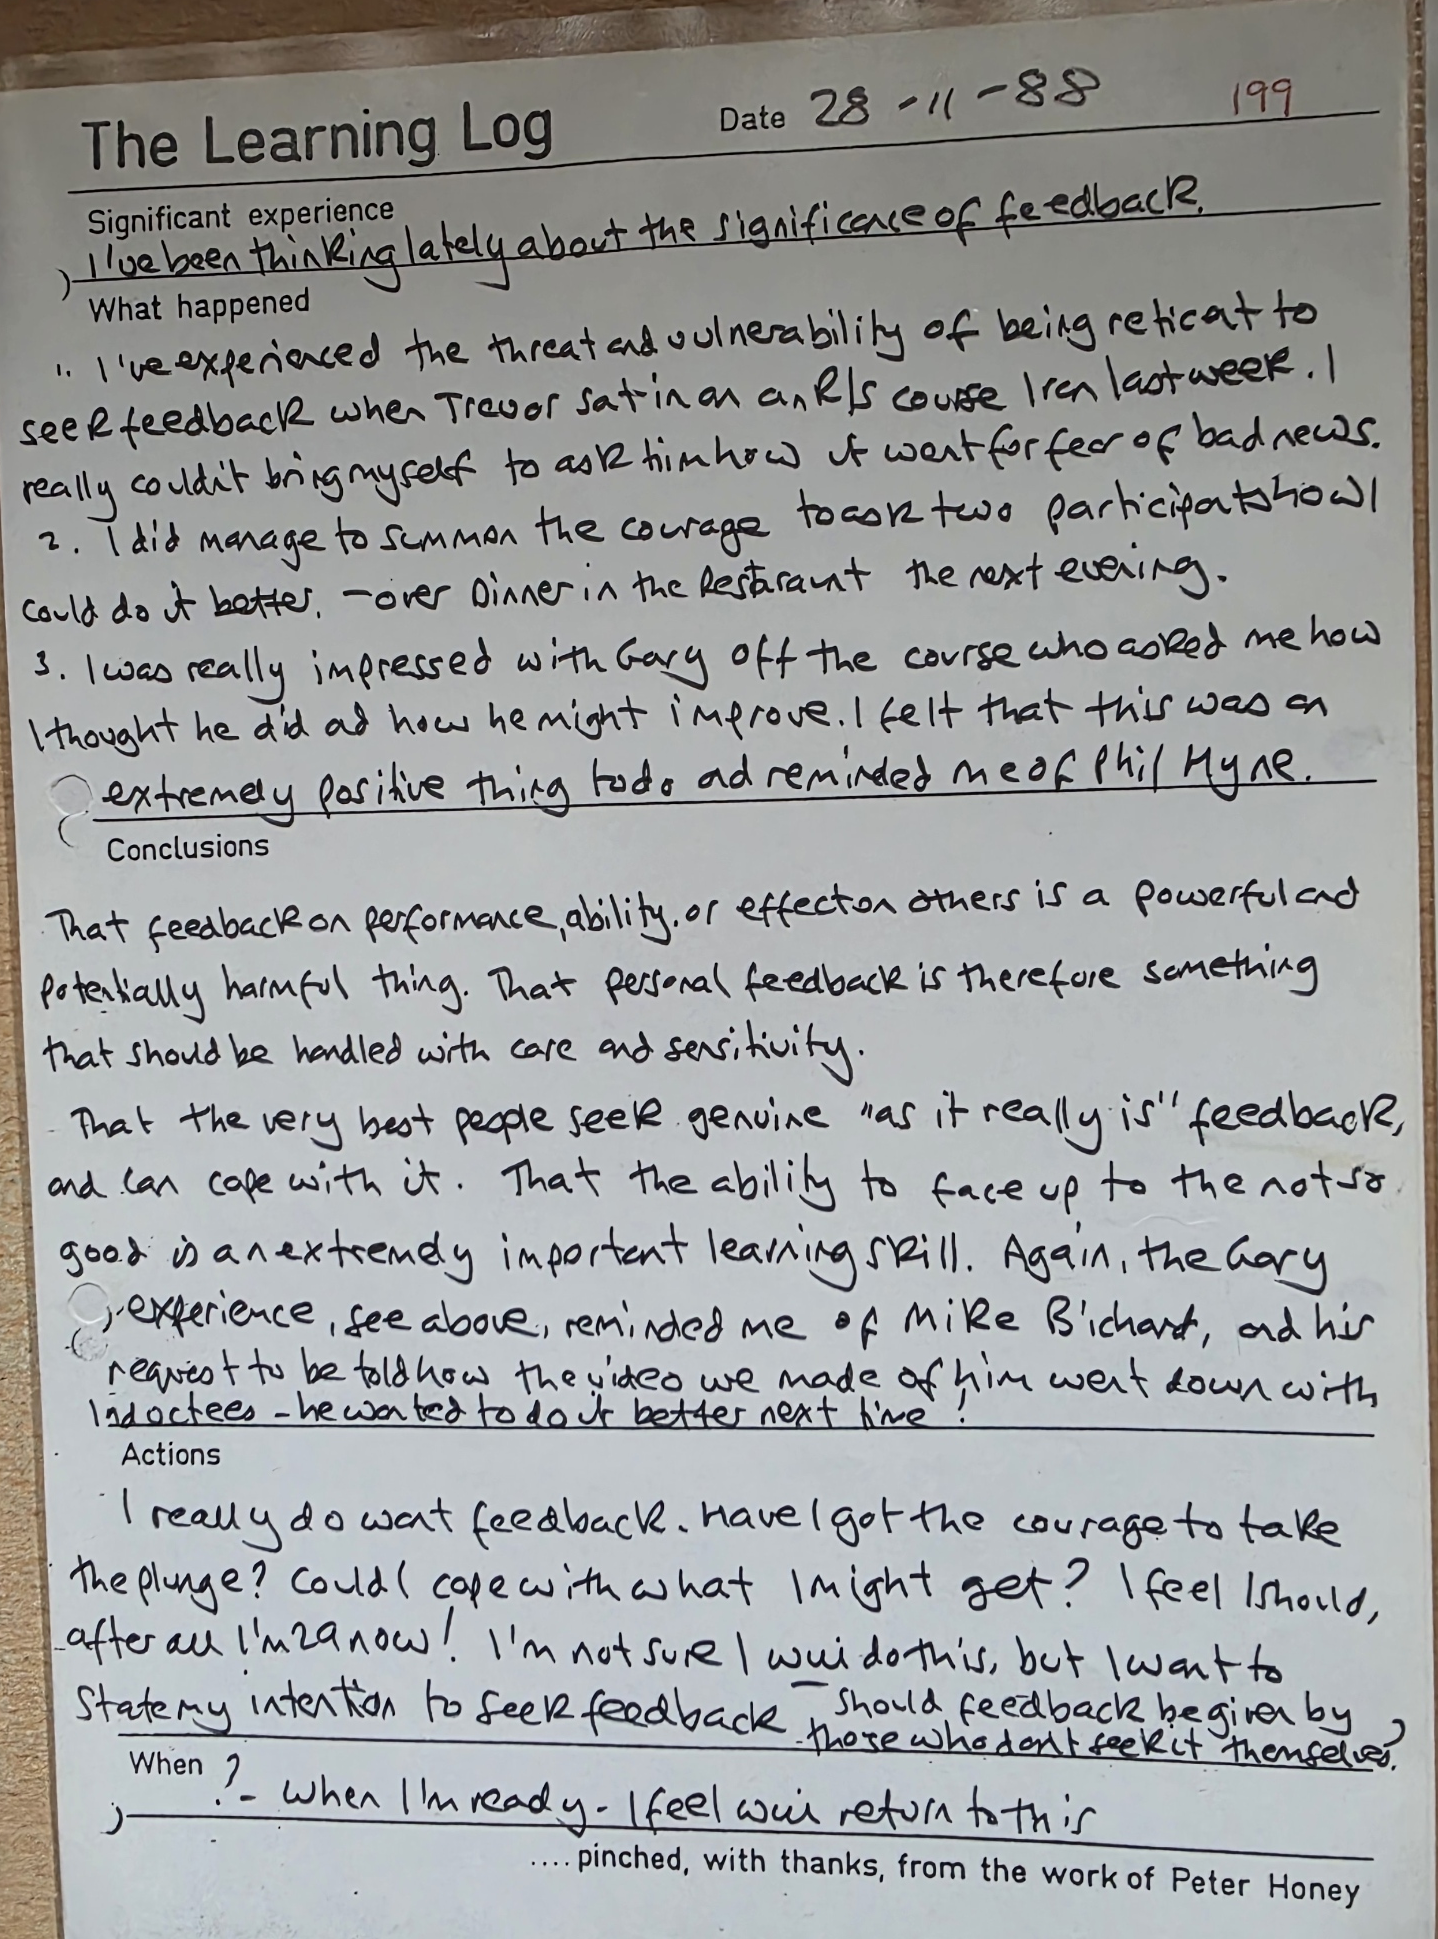 The Learning Log Date 28-11-88 199
Significant experience
I've been thinking lately about the significance of feedback.
What happened
1. I've experienced the threat and vulnerability of being reticent to
seek feedback when Trevor sat in on an R/S course I ran last week. I
really couldn't bring myself to ask him how it went for fear of bad news.
2. I did manage to summon the courage to ask two participants how I
could do it better. - over Dinner in the Restaraunt the next evening.
3. I was really impressed with Gary off the course who asked me how
I thought he did ad how he might improve. I felt that this was an
extremely positive thing to do ad reminded me of Phil Hyne.
Conclusions
That feedback on performance, ability, or effect on others is a powerful and
potentially harmful thing. That personal feedback is therefore something
that should be handled with care and sensitivity.
That the very best people seek genuine "as it really is" feedback,
and can cope with it. That the ability to face up to the not so
good is an extremely important learning skill. Again, the Gary
experience, see above, reminded me of Mike B'ichard, and his
request to be told how the video we made of him went down with
Inductees - he wanted to do it better next time!
Actions
I really do want feedback. Have I got the courage to take
the plunge? Could I cope with what I might get? I feel I should,
after all I'm 29 now! I'm not sure I will do this, but I want to
State my intention to seek feedback - Should feedback be given by
those who don't seek it themselves?
When ? - when I'm ready - I feel will return to this
.... pinched, with thanks, from the work of Peter Honey